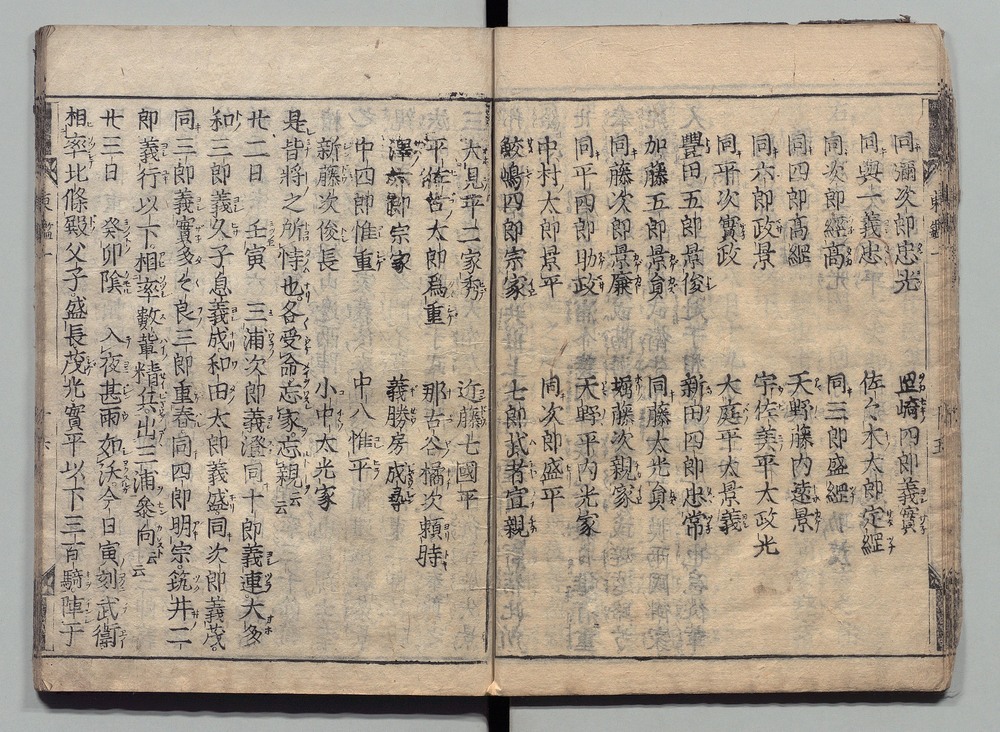 同彌次郎忠光 岡崎四郎義實
同與一義忠 佐々木太郎定綱
同次郎經高 同三郎盛綱
同四郎高綱 天野藤内遠景
同六郎政景 宇佐美平太政光
同平次實政 大庭平太景義
豐田五郎景俊 新田四郎忠常
加藤五郎景員 同藤太光員
同藤次郎景廉 堀藤次親家
同平四郎助政 天野平内光家
中村太郎景平 同次郎盛平
鮫嶋四郎宗家 七郎武者宣親
大見平二家秀 近藤七國平
平佐古太郎爲重 那古谷橘次頼時
澤六郎宗家 義勝房成尋
中四郎惟重 中八惟平
新藤次俊長 小中太光家
是皆將之所恃也各受命忘家忘親云云
廿二日 壬寅 三浦次郎義澄同十郎義連大多
和三郎義久子息義成和田太郎義盛同次郎義茂
同三郎義實多々良三郎重春同四郎明宗筑井二
郎義行以下相率數輩精兵出三浦參向云云
廿三日 癸卯陰 入夜甚雨如沃今日寅刻武衛
相率北條殿父子盛長茂光實平以下三百騎陣于